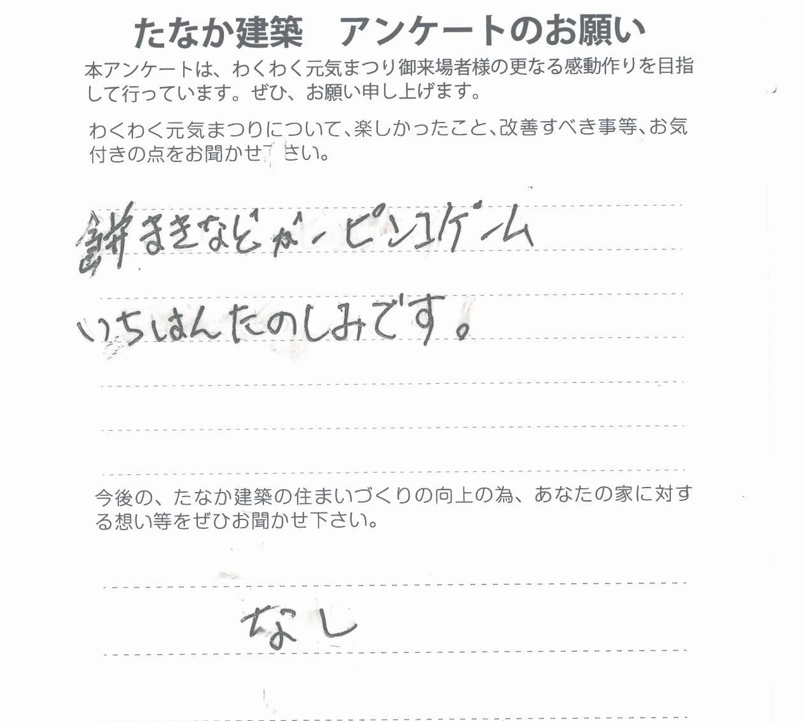 たなか建築　アンケートのお願い
本アンケートは、わくわく元気まつり御来場者様の更なる感動作りを目指
して行っています。ぜひ、お願い申し上げます。
わくわく元気まつりについて、楽しかったこと、改善すべき事等、お気
付きの点をお聞かせ下さい。
餅まきなどが一ピンコゲーム
いちはんたのしみです。
今後の、たなか建築の住まいづくりの向上の為、あなたの家に対す
る想い等をぜひお聞かせ下さい。
なし